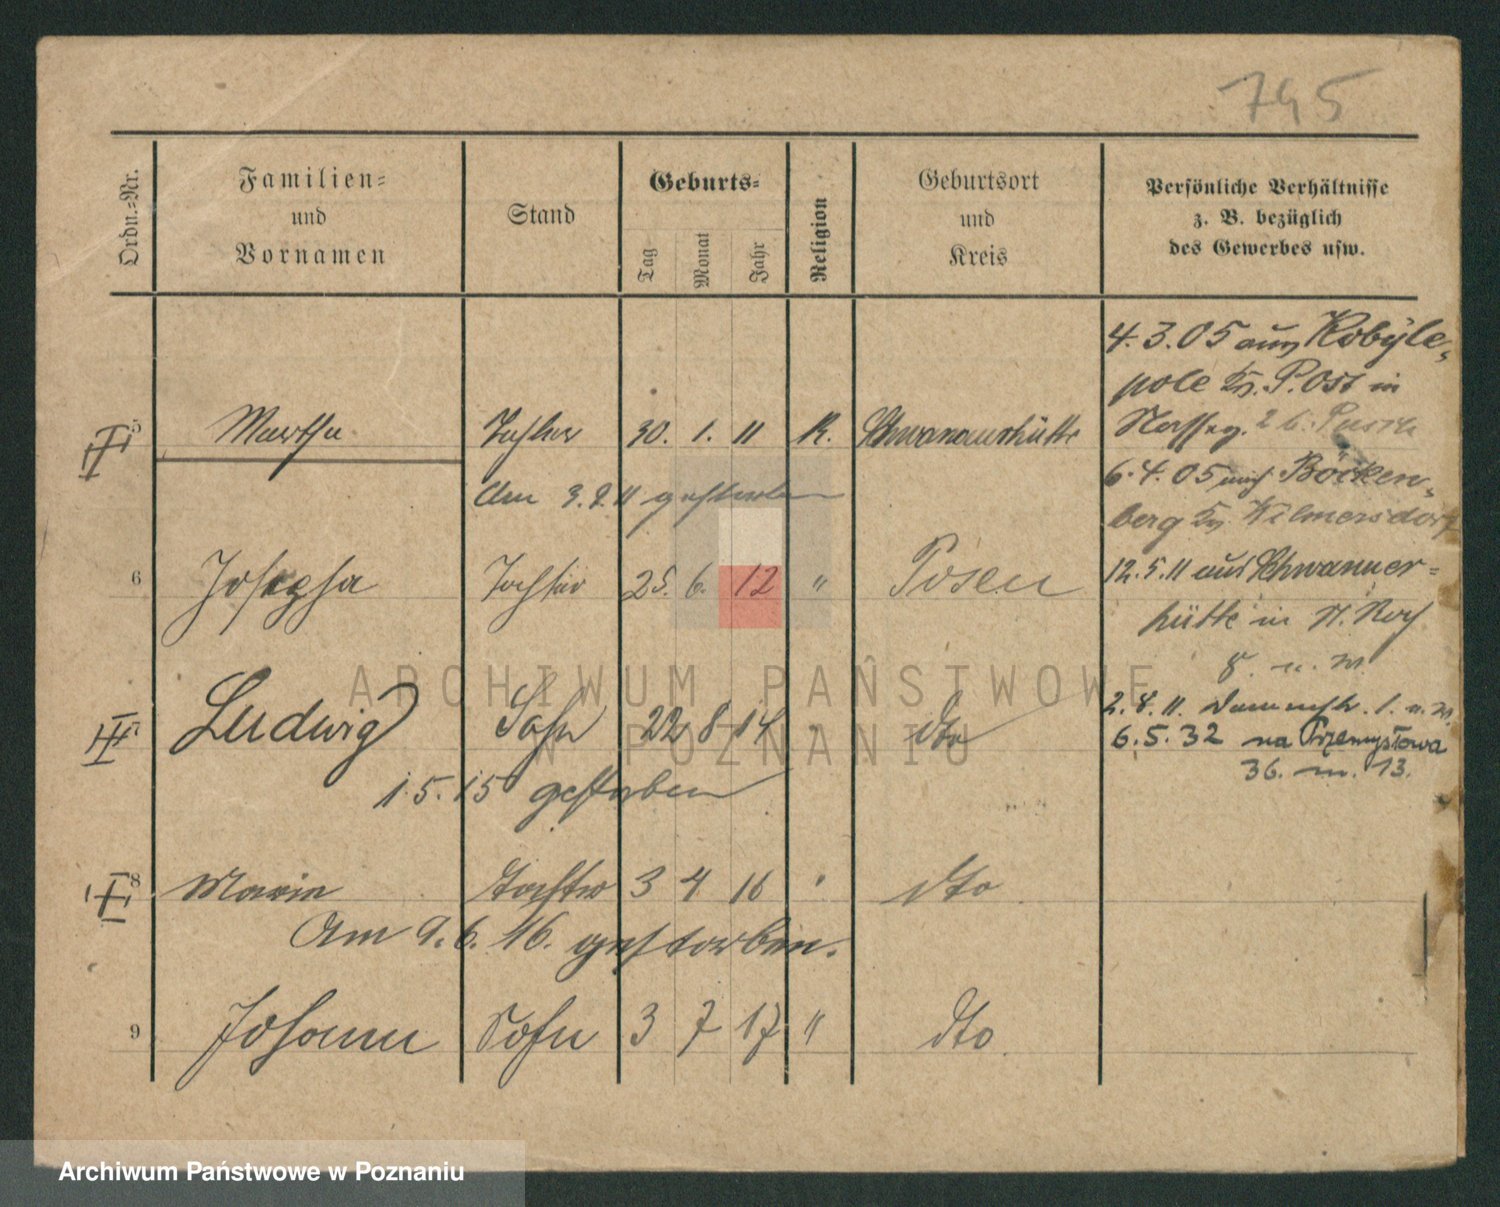 745
Ordn.-Nr.
Familien-
und
Vornamen
Stand
Geburts-
Tag
Monat
Jahr
Religion
Geburtsort
und
Kreis
Persönliche Verhältnisse
z. B. bezüglich
des Gewerbes usw.
4.3.05 aus Kobyle-
pole Kr. P. Ost in
6.4.05 nach Böcken-
berg Kr. Wilmersdorf
12.5.11 aus Schwanner-
hütte in St. Roch
8.
2.8.11. 1.
6.5.32 na Przemysłowa
36. m. 13.
5 Martha Tochter 30. 1. 11 K.
Am 3.9.11 gestorben
6 Josepha Tochter 25. 6. 12 " Posen
7 Ludwig Sohn 22 8 14 " dto
1.5.15 gestorben
8 Maria Tochter 3 4 16 " dto
Am 9.6.16. gestorben.
9 Johann Sohn 3 7 17 " dto
ARCHIWUM PAŃSTWOWE
W POZNANIU
Archiwum Państwowe w Poznaniu